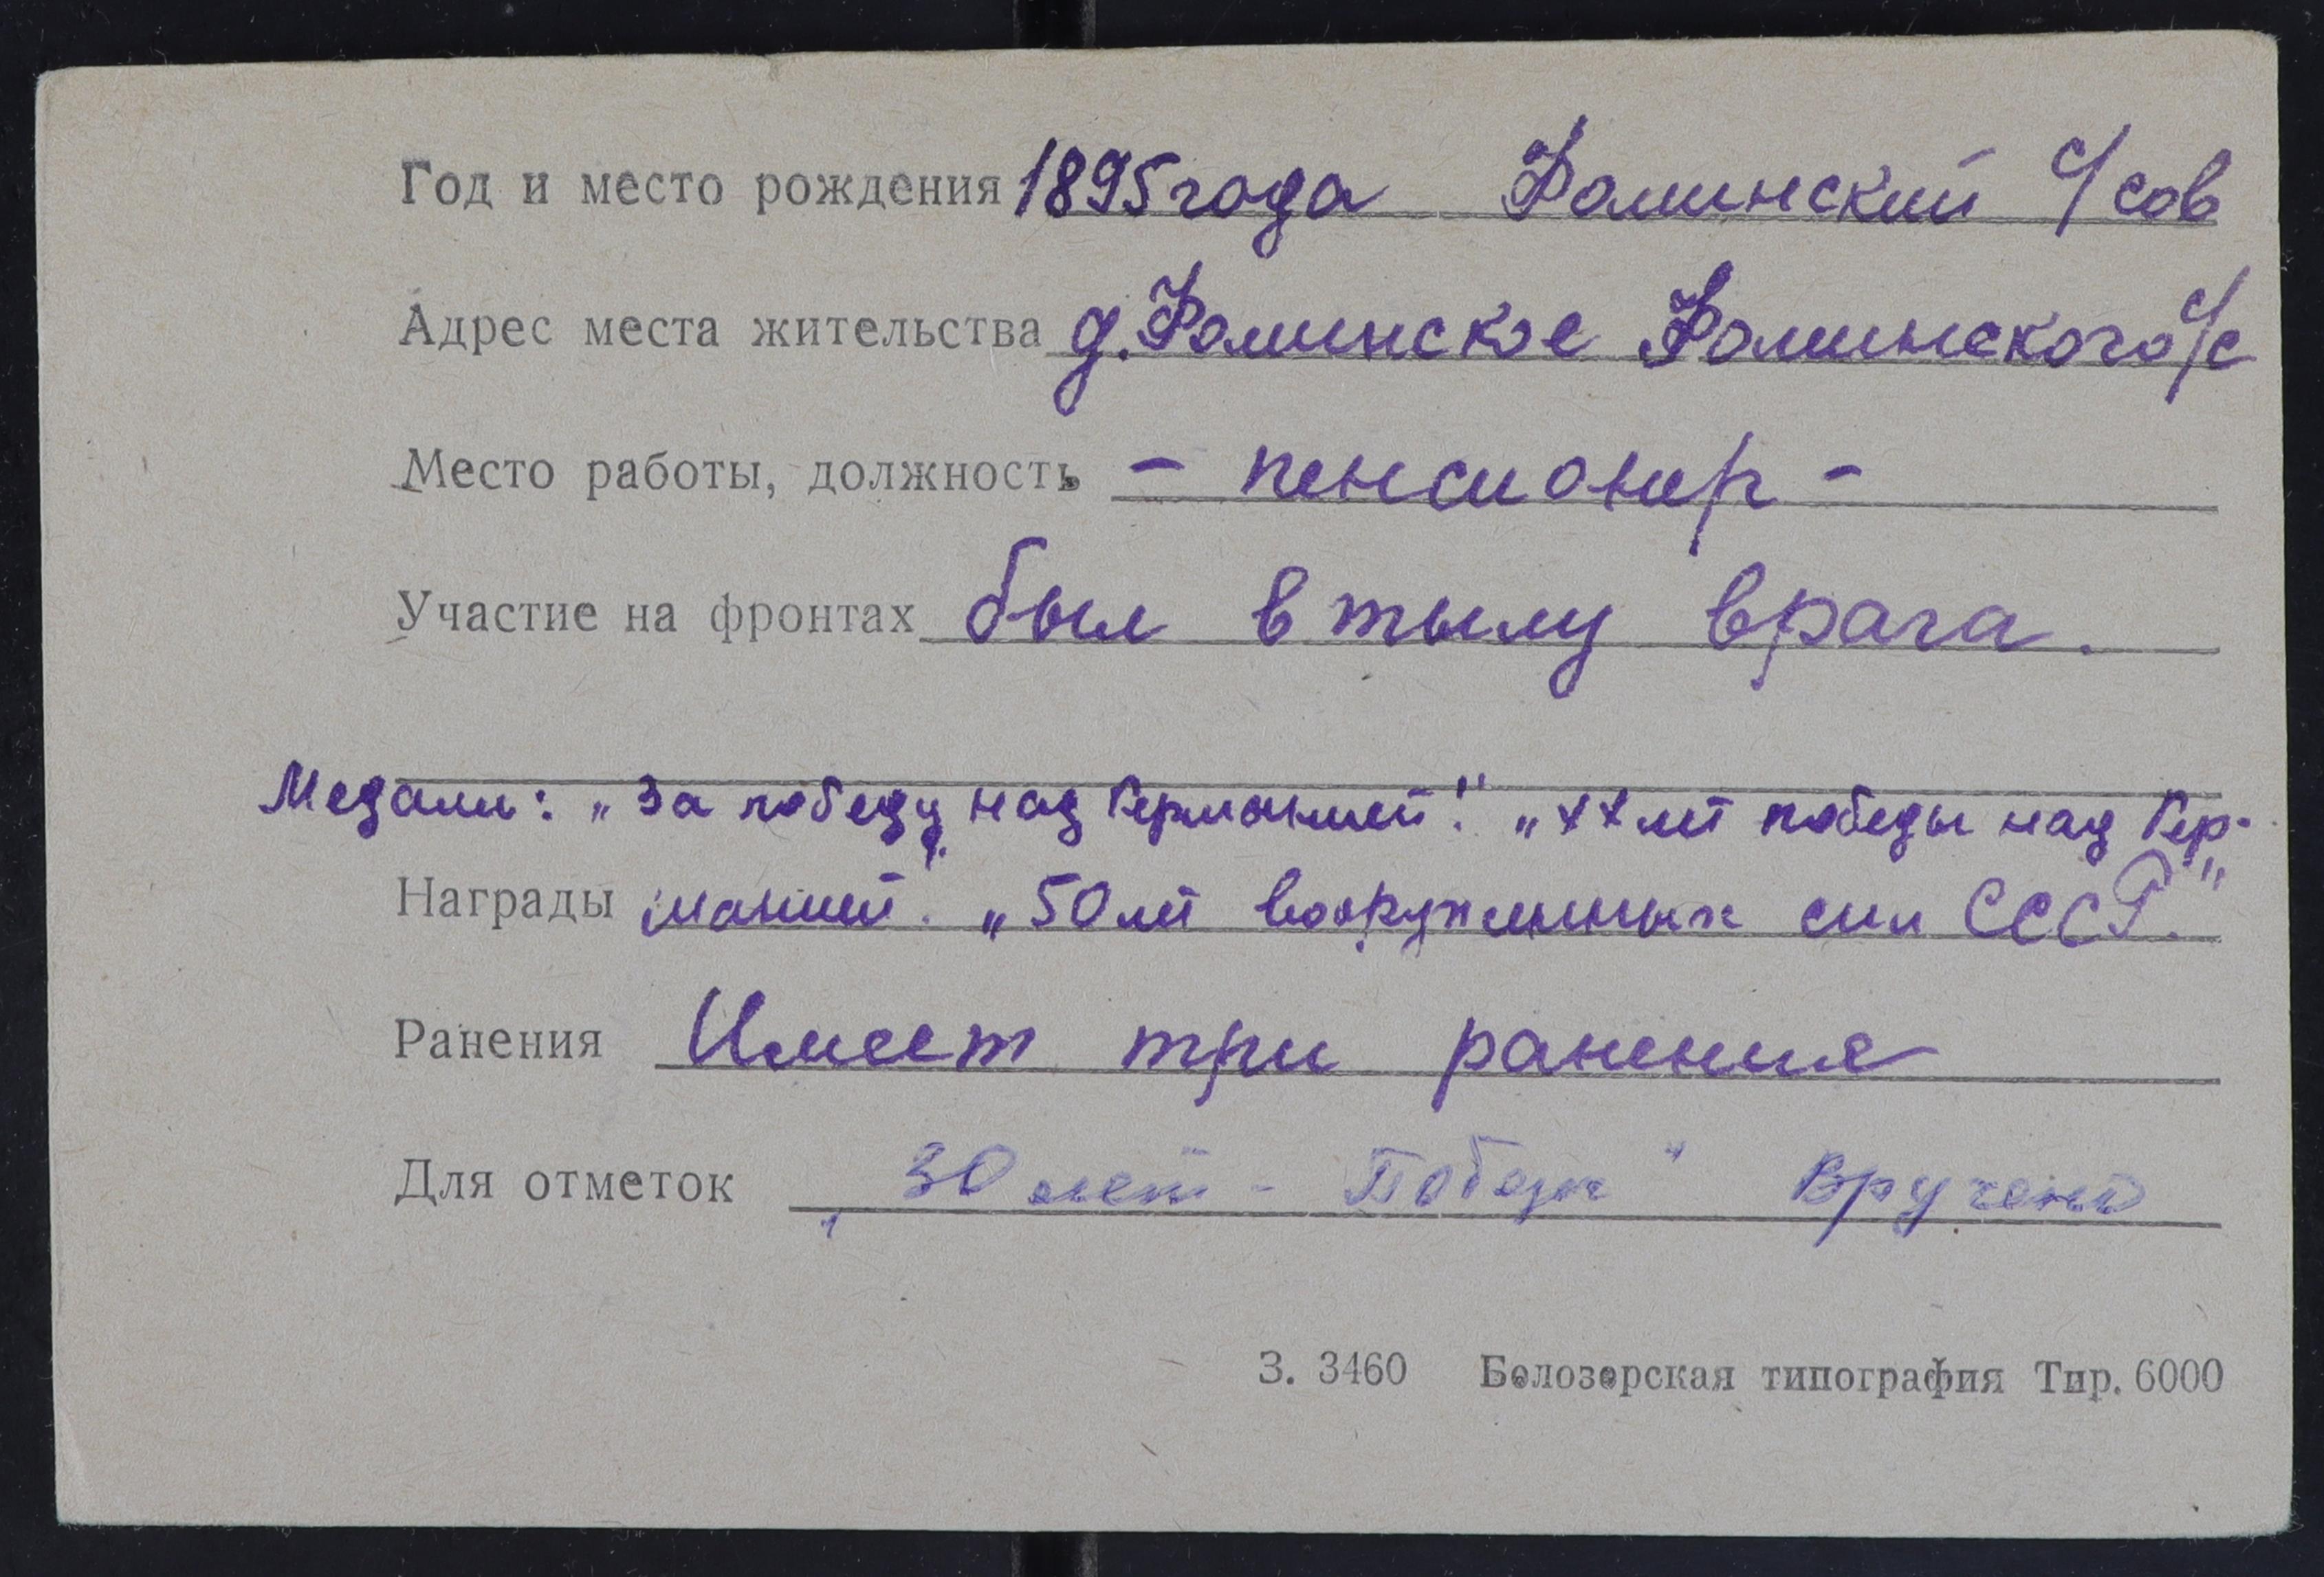 Год и место рождения 1895 года Фоминский с/сов
Адрес места жительства д. Фоминское Фоминского с/с
Место работы, должность - пенсионер -
Участие на фронтах был в тылу врага.
Медали: „За победу над Германией." „ХХ лет победы над Гер-
Награды манией". „50 лет вооруженных сил СССР."
Ранения Имеет три ранения
Для отметок „30 лет - Победы" вручена
З. 3460 Белозерская типография Тир. 6000